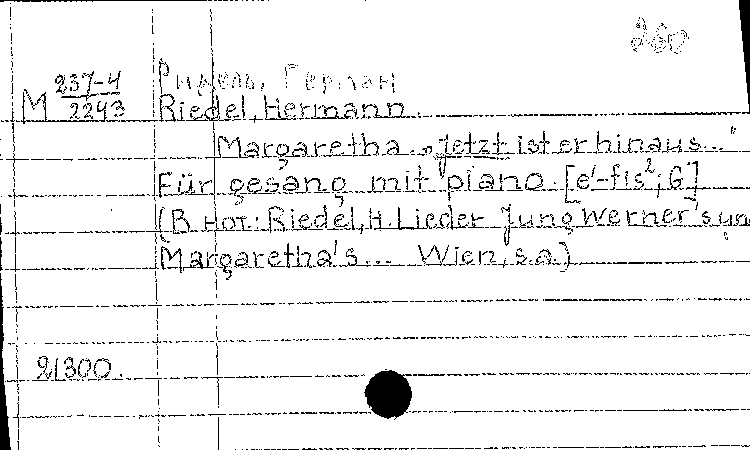 260
Ридель, Герман
M 237-4/2243 Riedel, Hermann.
Margaretha. „Jetzt ist er hinaus..."
Für gesang mit piano. [e'-fis²; G]
(В нот.: Riedel, H. Lieder Jung Werner's und
Margaretha's... Wien, s.a.)
21300.